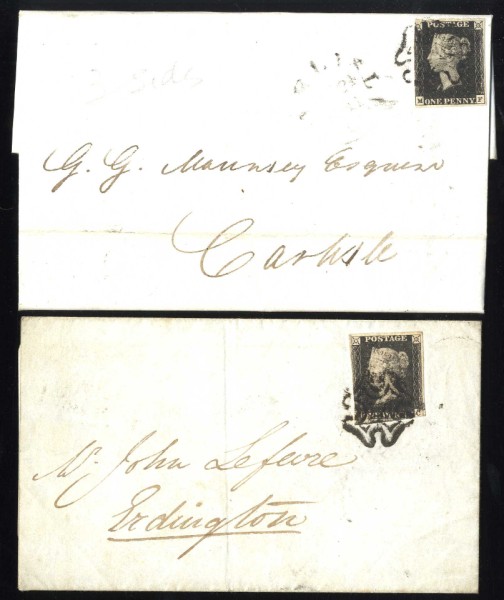 3 Sides
POSTAGE
M ONE PENNY F
G. G. Mounsey Esquire
Carlisle
POSTAGE
Mr. John Lefevre
Erdington